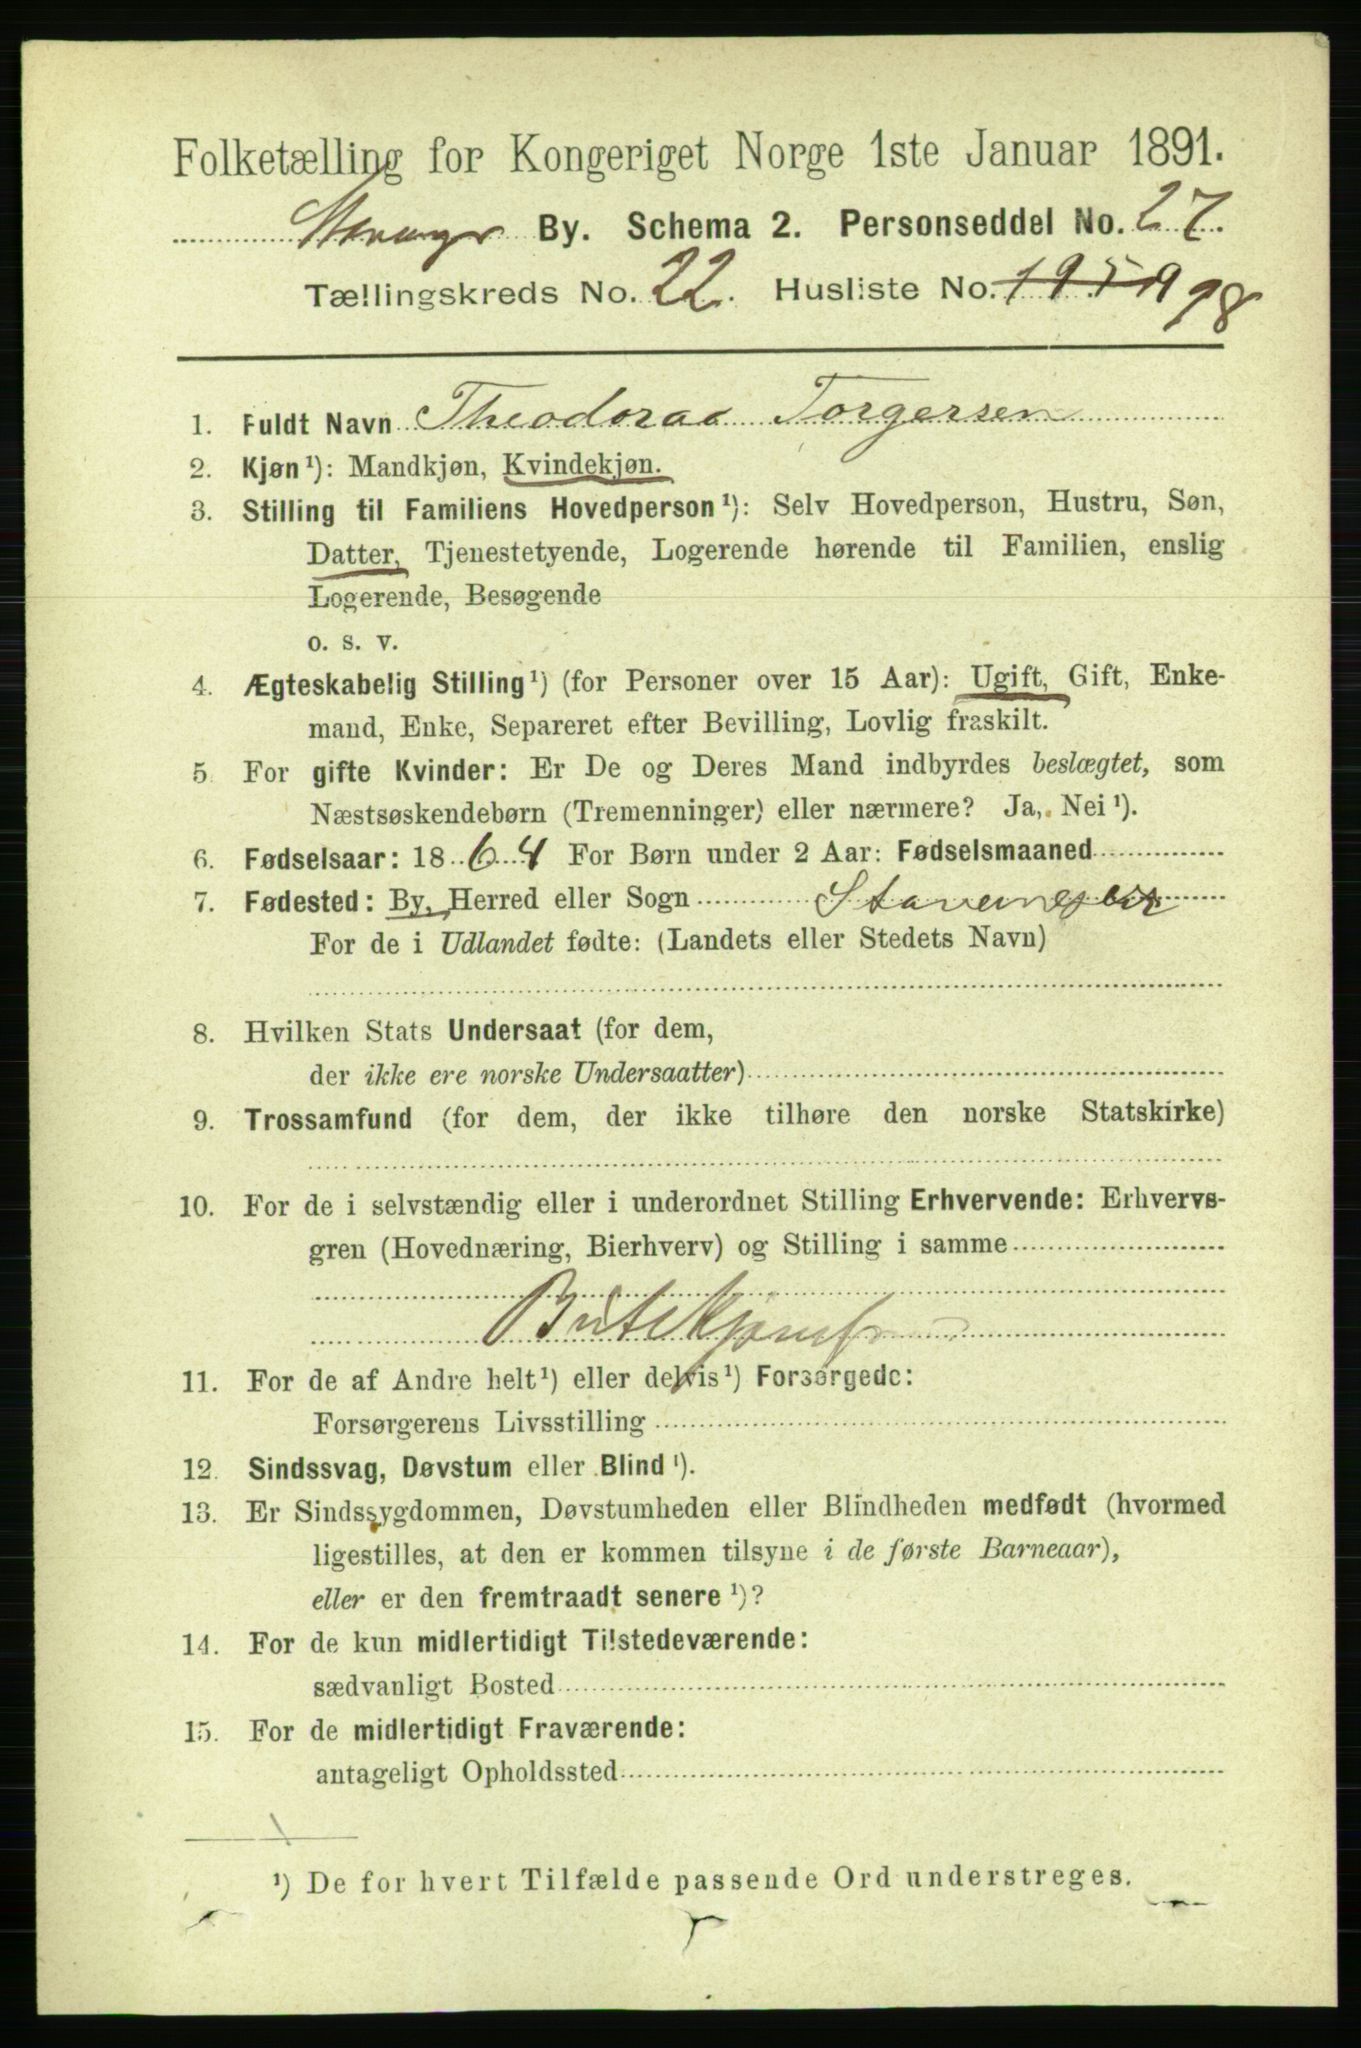 Folketælling for Kongeriget Norge 1ste Januar 1891.
Stavanger By. Schema 2. Personseddel No. 27.
Tællingskreds No. 22. Husliste No. 198
1. Fuldt Navn Theodora Torgersen
2. Kjøn¹): Mandkjøn, Kvindekjøn.
3. Stilling til Familiens Hovedperson¹): Selv Hovedperson, Hustru, Søn,
Datter, Tjenestetyende, Logerende hørende til Familien, enslig
Logerende, Besøgende
o. s. v.
4. Ægteskabelig Stilling¹) (for Personer over 15 Aar): Ugift, Gift, Enke-
mand, Enke, Separeret efter Bevilling, Lovlig fraskilt.
5. For gifte Kvinder: Er De og Deres Mand indbyrdes beslægtet, som
Næstsøskendebørn (Tremenninger) eller nærmere? Ja, Nei¹).
6. Fødselsaar: 1864 For Børn under 2 Aar: Fødselsmaaned
7. Fødested: By, Herred eller Sogn
For de i Udlandet fødte: (Landets eller Stedets Navn)
8. Hvilken Stats Undersaat (for dem,
der ikke ere norske Undersaatter)
9. Trossamfund (for dem, der ikke tilhøre den norske Statskirke)
10. For de i selvstændig eller i underordnet Stilling Erhvervende: Erhvervs-
gren (Hovednæring, Bierhverv) og Stilling i samme
Butikjomfru
11. For de af Andre helt¹) eller delvis¹) Forsørgede:
Forsørgerens Livsstilling
12. Sindssvag, Døvstum eller Blind¹).
13. Er Sindssygdommen, Døvstumheden eller Blindheden medfødt (hvormed
ligestilles, at den er kommen tilsyne i de første Barneaar),
eller er den fremtraadt senere¹)?
14. For de kun midlertidigt Tilstedeværende:
sædvanligt Bosted
15. For de midlertidigt Fraværende:
antageligt Opholdssted
¹) De for hvert Tilfælde passende Ord understreges.